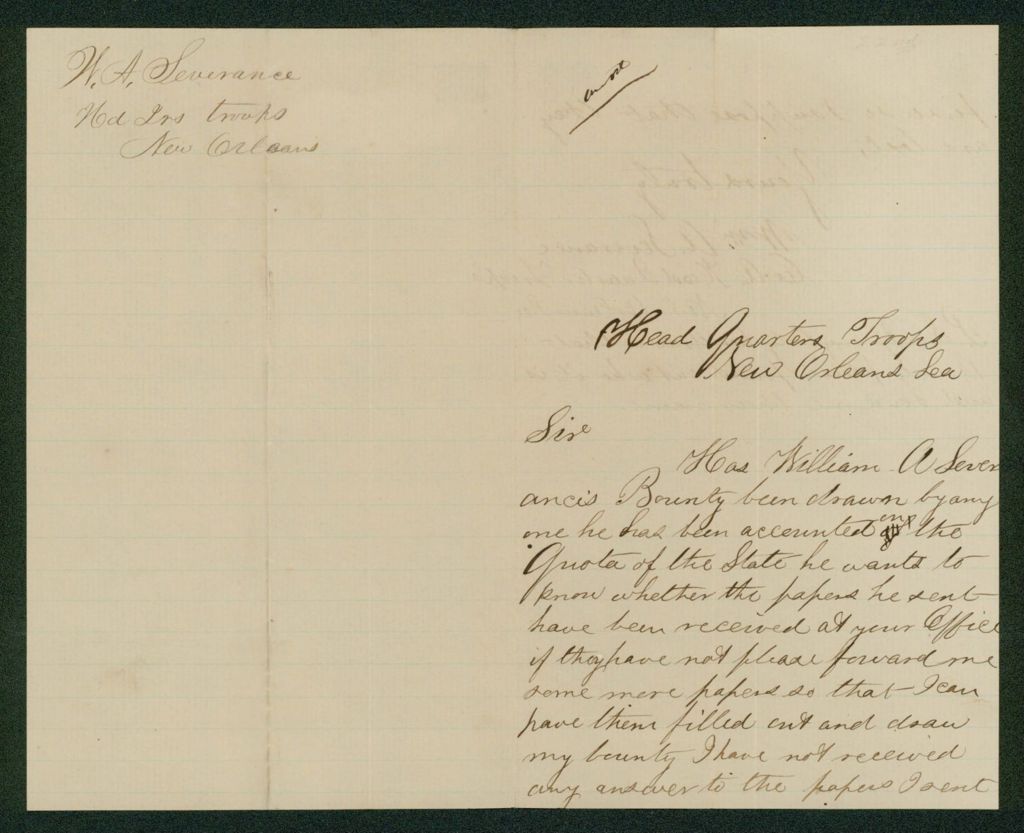 W. A. Severance
Hd Qrs troops
New Orleans
Head Quarters Troops
New Orleans Lea
Sir
Has William A Sever
ancis Bounty been drawn by any
one he has been accounted on the
Quota of the State he wants to
know whether the papers he sent
have been received at your Office
if they have not please forward me
some more papers so that I can
have them filled out and draw
my bounty I have not received
any answer to the papers I sent